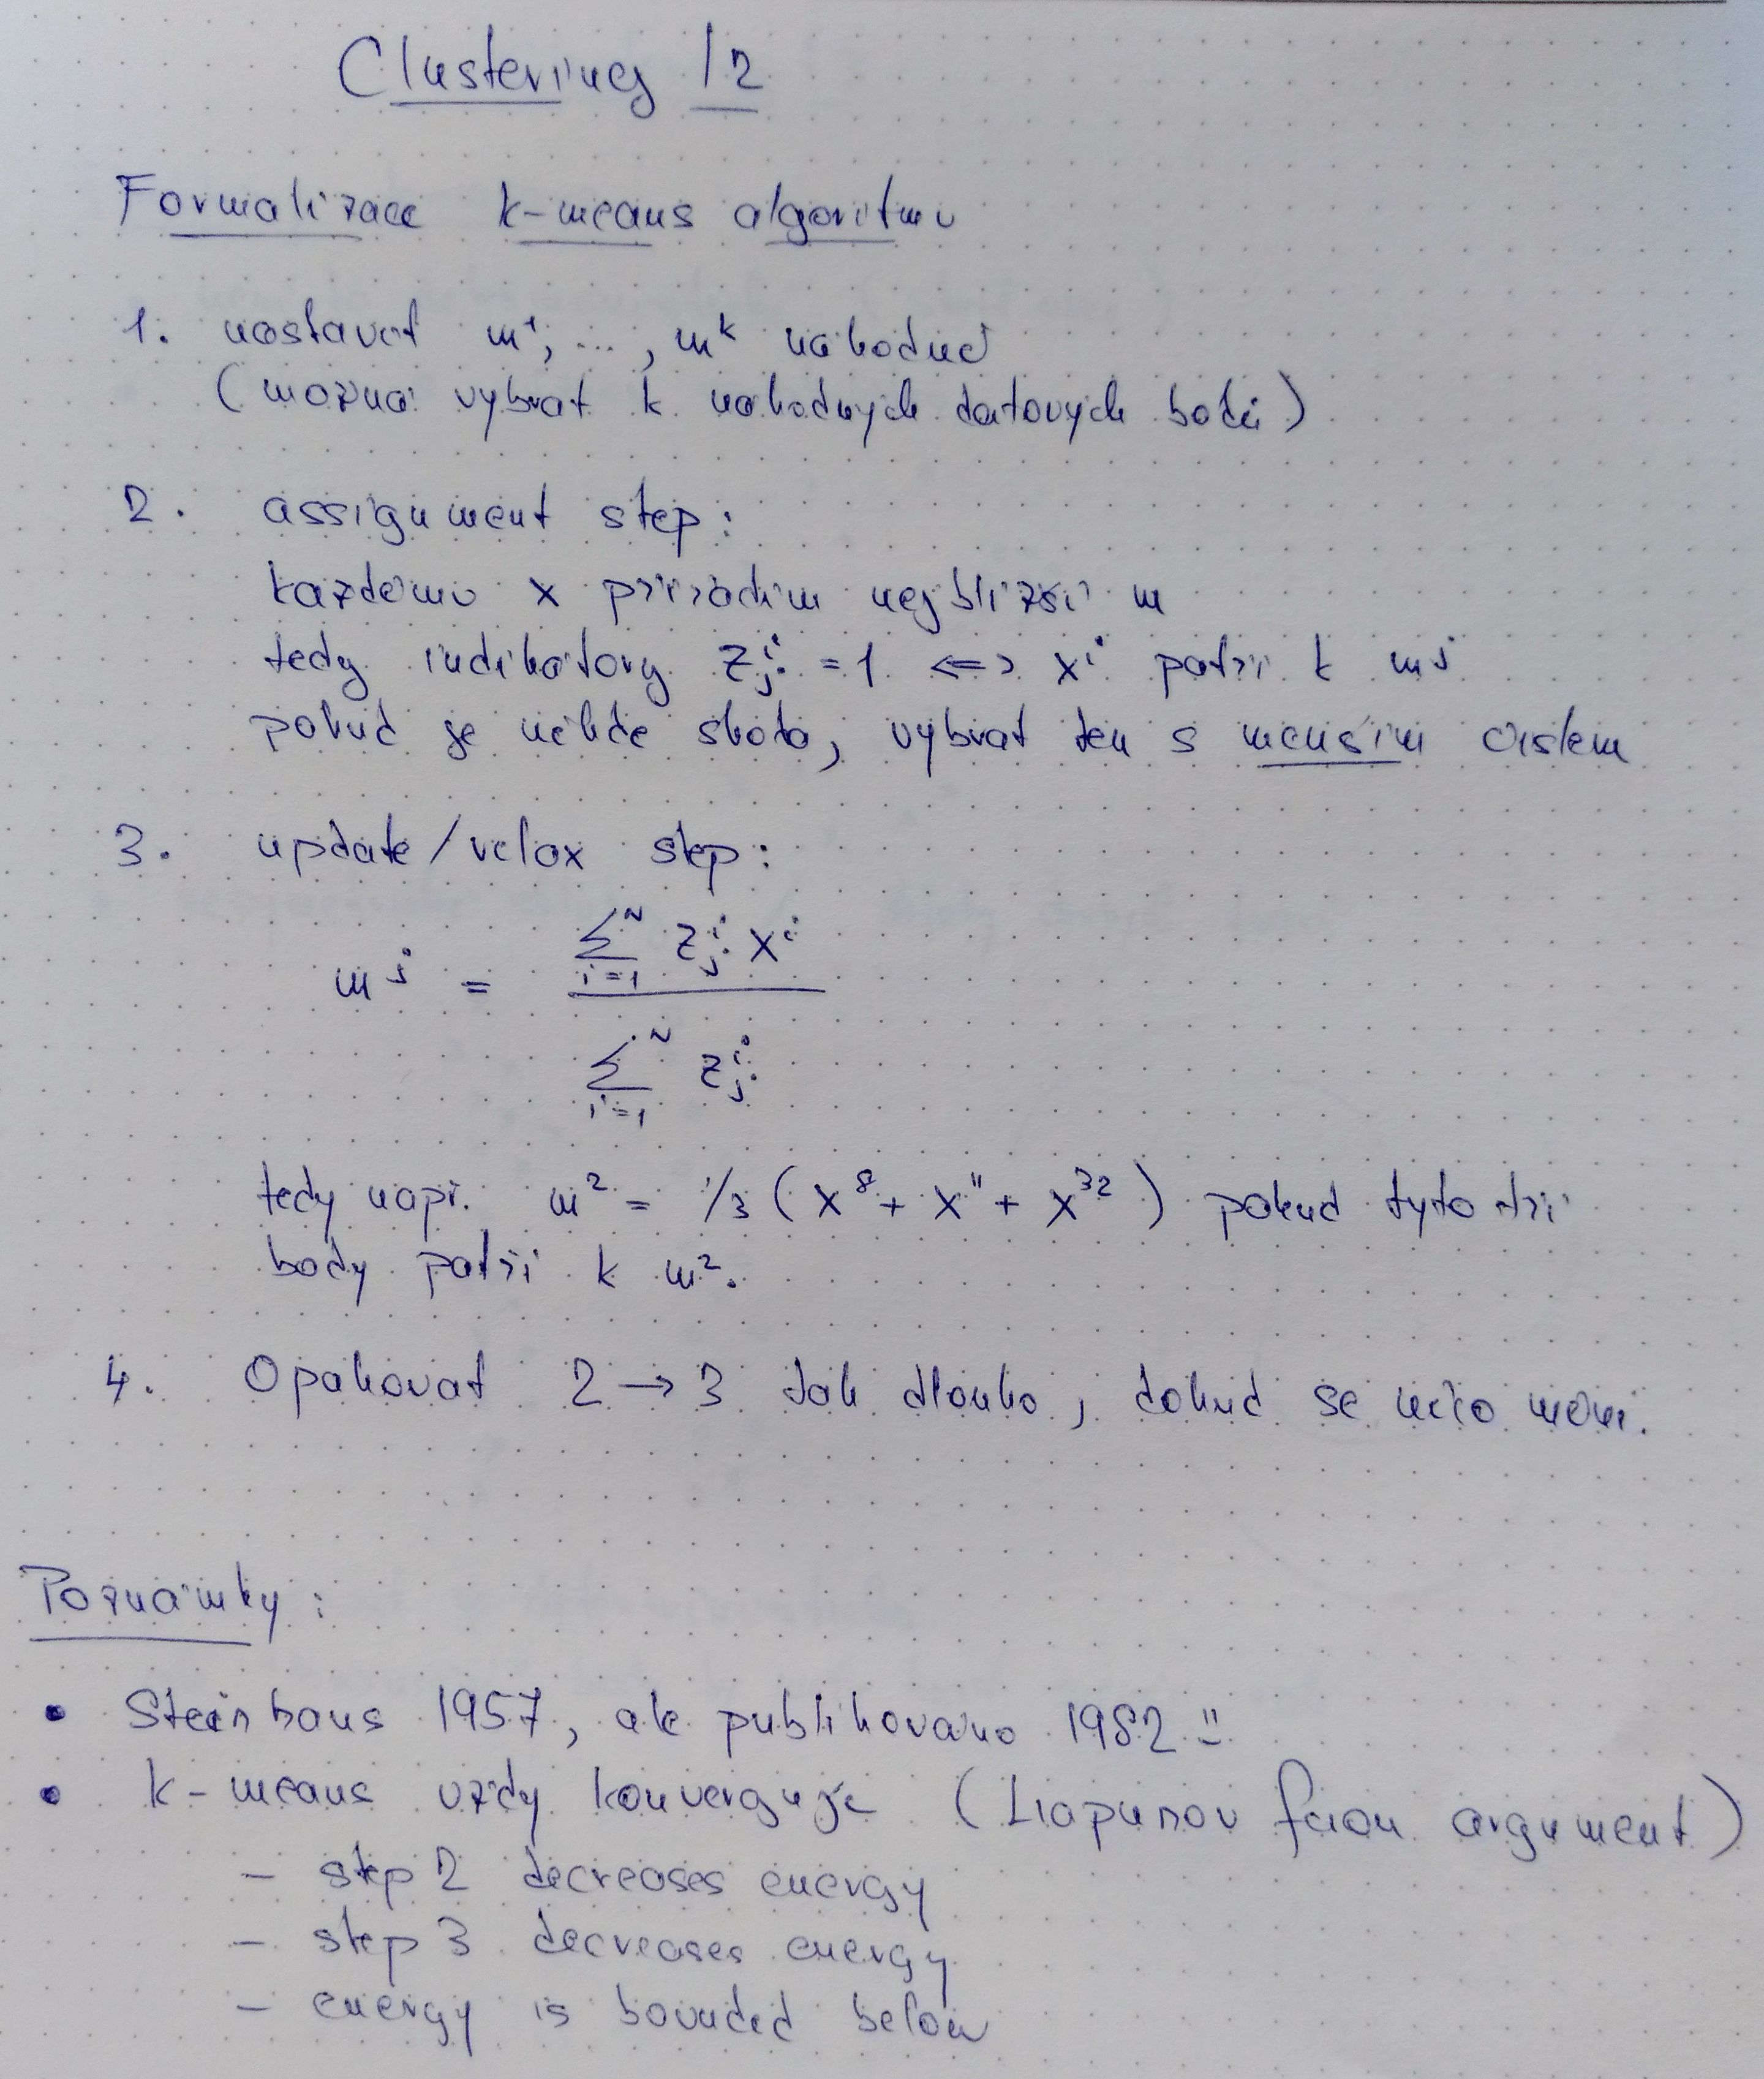 Clustering /2
Formalizace k-means algoritmu
1. nastavit m¹, ..., mᵏ náhodně
(možná vybrat k náhodných datových bodů)
2. assignment step:
každému x přiřadím nejbližší m
tedy indikátory zⱼⁱ = 1 <=> xⁱ patří k mʲ
pokud je někde shoda, vybrat ten s menším číslem
3. update/relax step:
mʲ = Σᵢ₌₁ᴺ zⱼⁱ xⁱ / Σᵢ₌₁ᴺ zⱼⁱ
tedy např. m² = 1/3 (x⁸ + x¹¹ + x³²) pokud tyto tři
body patří k m².
4. Opakovat 2 → 3 tak dlouho, dokud se něco mění.
Poznámky:
• Steinhaus 1957, ale publikováno 1982 !!
• k-means vždy konverguje (Liapunov fcion argument)
- step 2 decreases energy
- step 3 decreases energy
- energy is bounded below